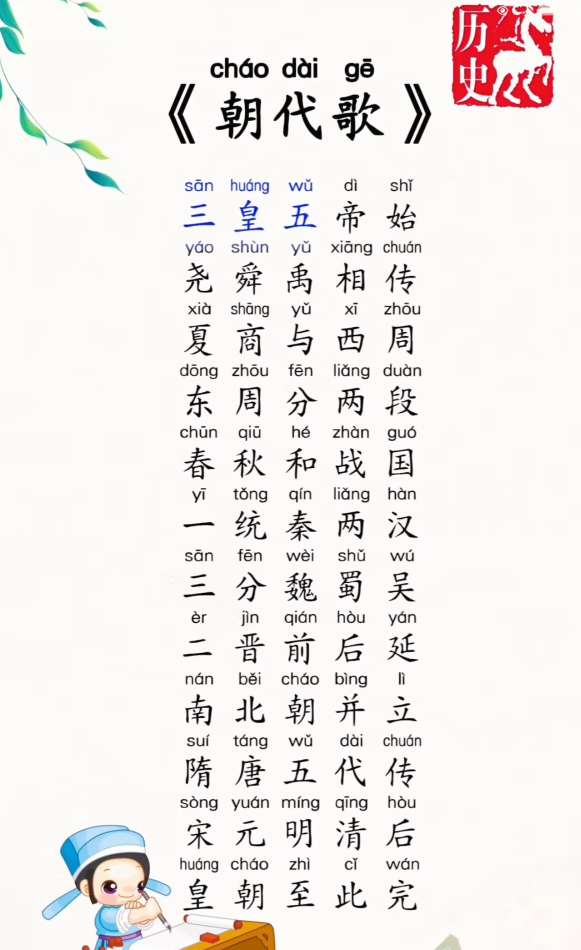 历史
cháo dài gē
《朝代歌》
sān huáng wǔ dì shǐ
三皇五帝始
yáo shùn yǔ xiāng chuán
尧舜禹相传
xià shāng yǔ xī zhōu
夏商与西周
dōng zhōu fēn liǎng duàn
东周分两段
chūn qiū hé zhàn guó
春秋和战国
yī tǒng qín liǎng hàn
一统秦两汉
sān fēn wèi shǔ wú
三分魏蜀吴
èr jìn qián hòu yán
二晋前后延
nán běi cháo bìng lì
南北朝并立
suí táng wǔ dài chuán
隋唐五代传
sòng yuán míng qīng hòu
宋元明清后
huáng cháo zhì cǐ wán
皇朝至此完